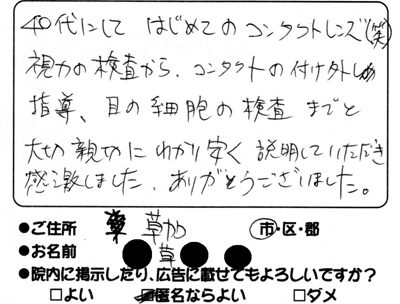 40代にして はじめての コンタクトレンズ(笑)
視力の検査から、コンタクトの付け外しの
指導、目の細胞の検査 までと
大切 親切に わかり安く 説明していただき
感激しました。ありがとうございました。
●ご住所 草加 市・区・郡
●お名前 草
●院内に掲示したり、広告に載せてもよろしいですか?
□よい ☑匿名ならよい □ダメ